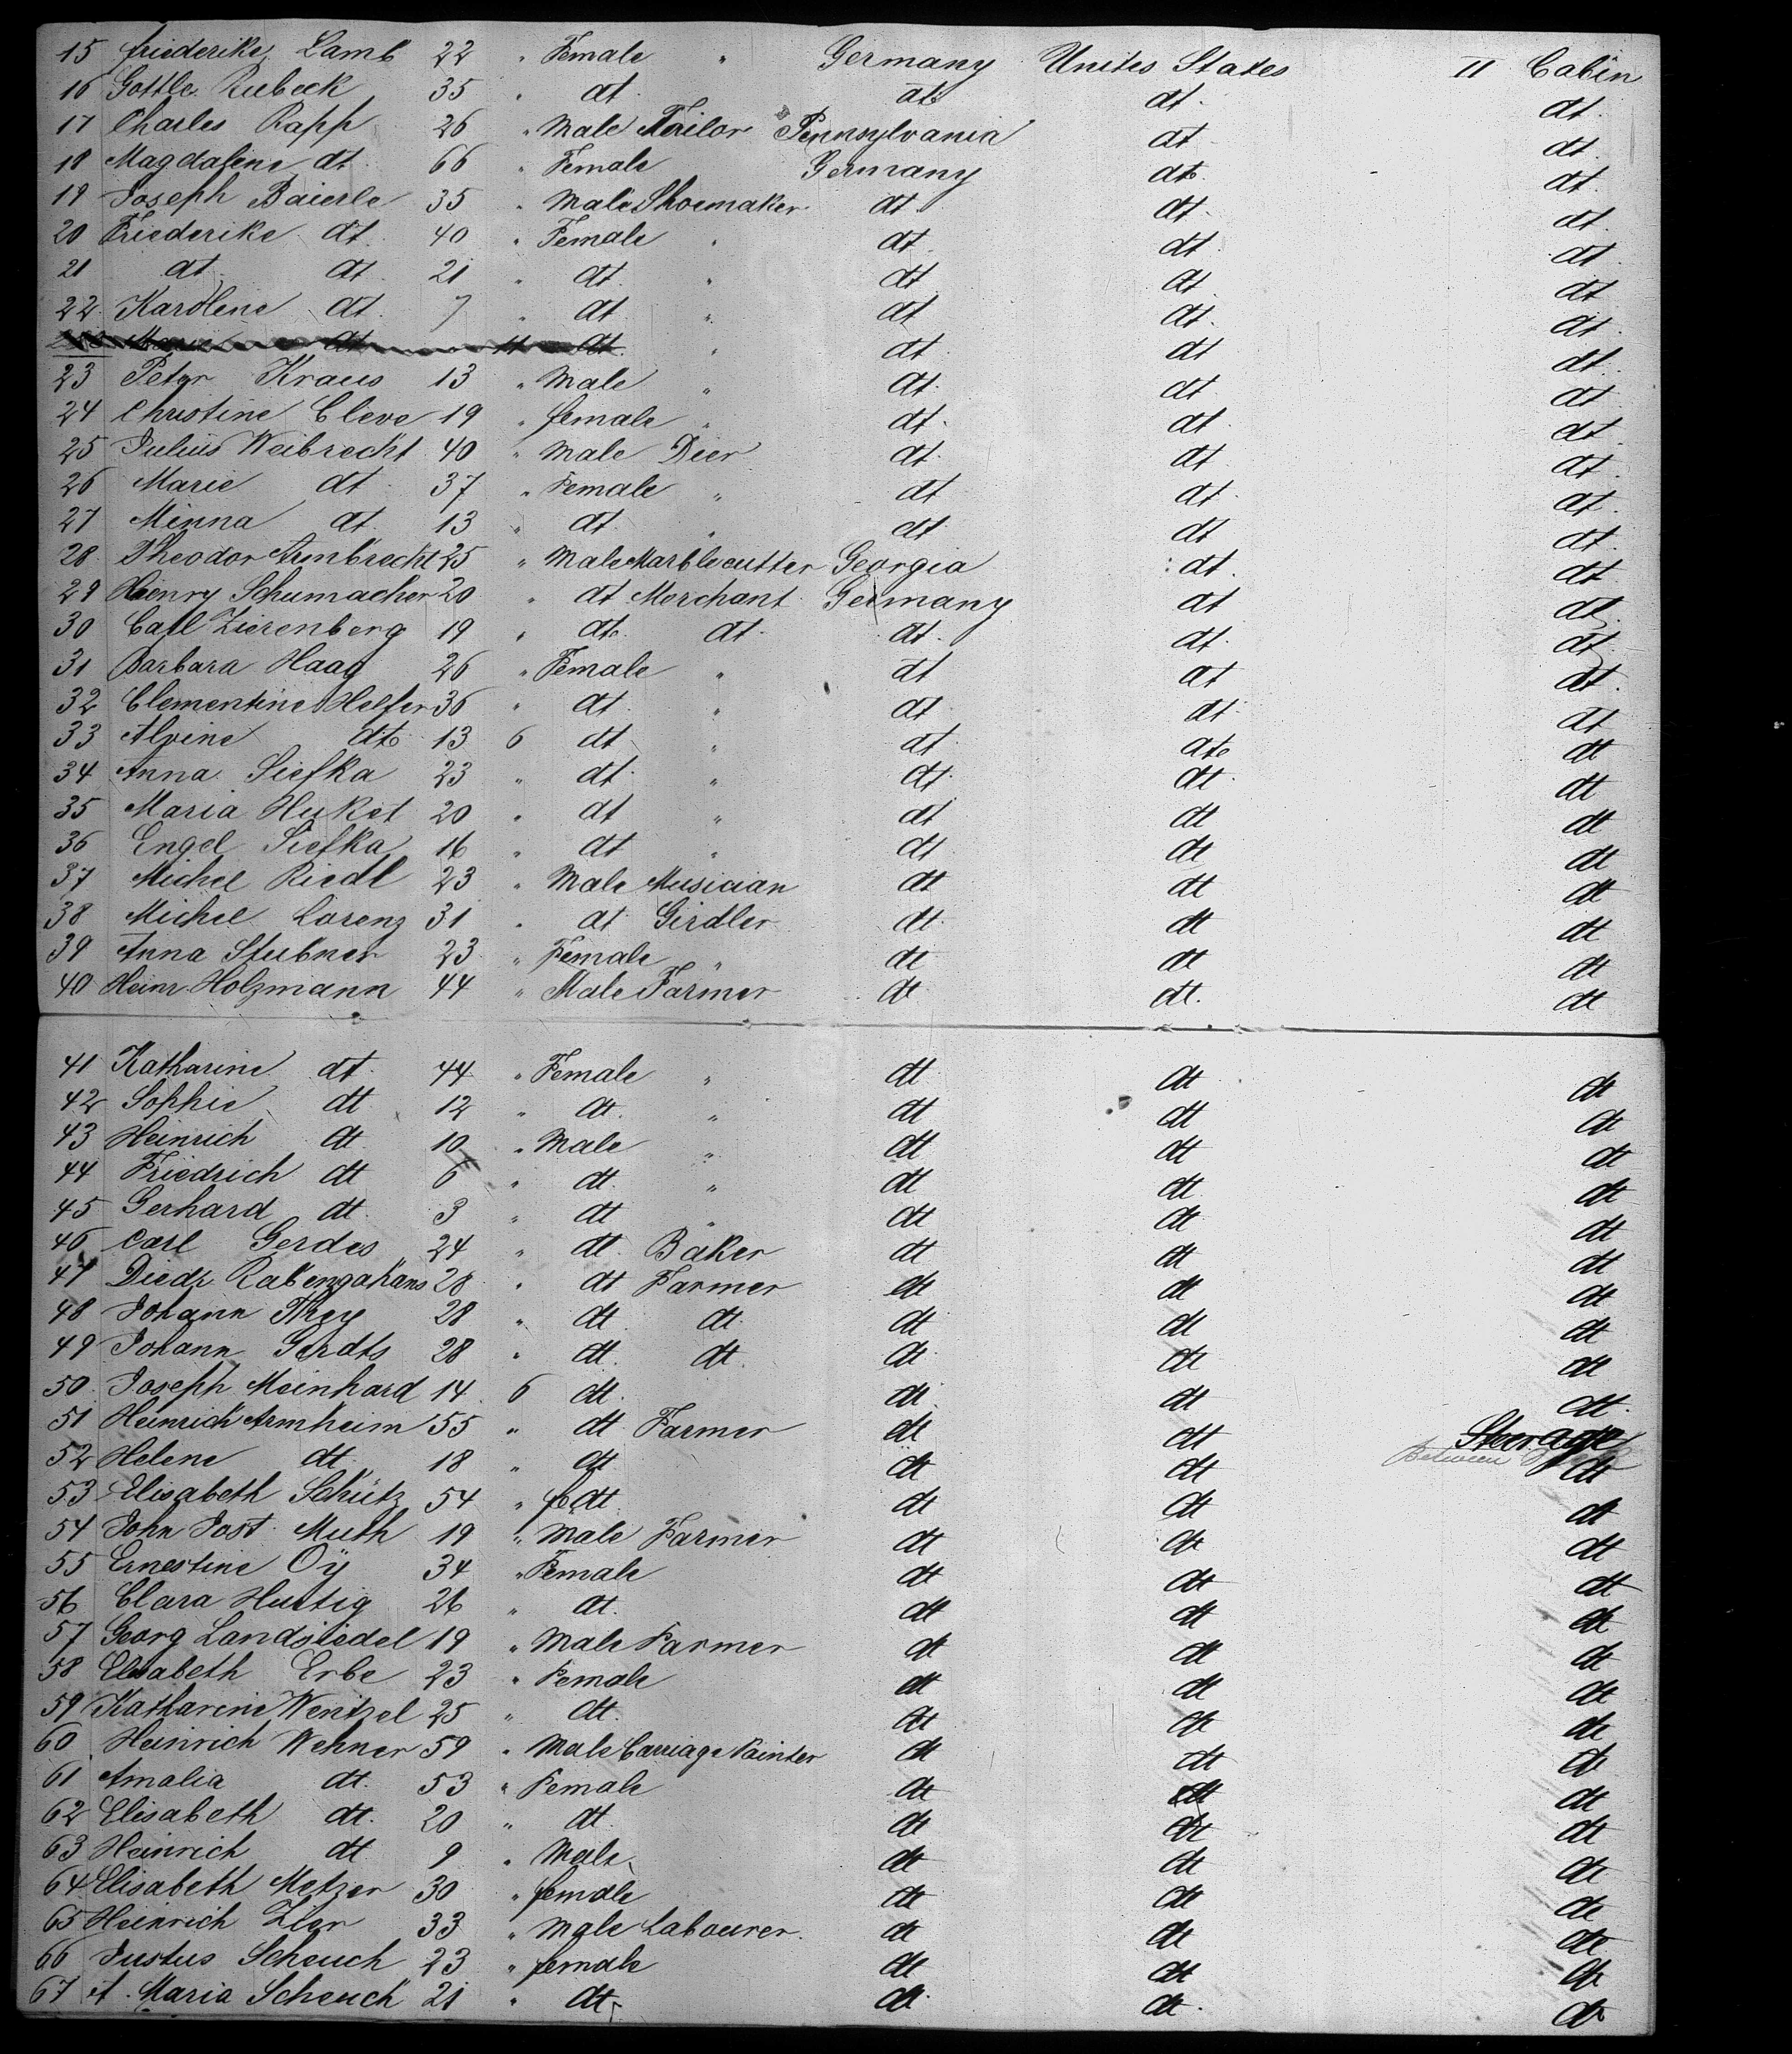 15 Friederike Lamb 22 " Female " Germany Unites States II Cabin
16 Gottle. Rubeck 35 " dt. dto dt. dt.
17 Charles Rapp 26 " Male Tailor Pennsylvania dt dt.
18 Magdalene dt. 66 " Female Germany dto. dt.
19 Joseph Baierle 35 " Male Shoemaker dt. dt. dt.
20 Friederike dt. 40 " Female " dt. dt. dt.
21 dt. dt. 21 " dt. " dt dt dt
22 Karoline dt. 7 " dt " dt dt. dt.
dt 11 dt. " dt. dt dt.
23 Peter Kraus 13 " Male " dt. dt dt
24 Christine Cleve 19 " female " dt. dt. dt.
25 Julius Weibrecht 40 " Male Dier dt. dt dt.
26 Marie dt. 37 " Female " dt dt. dt.
27 Minna dt. 13 " dt. " dt. dt dt.
28 Theodor Armbrecht 25 " Male Marblecutter Georgia dt. dt
29 Henry Schumacher 20 " dt Merchant Germany dt dt.
30 Carl Zierenberg 19 " dto. dt. dt. dt. dt.
31 Barbara Haag 26 " Female " dt dt dt.
32 Clementine Helfer 36 " dt. " dt dt. dt
33 Alvine dto 13 6 dt " dt. dto dt
34 Anna Siefka 23 " dt. " dt. dt. dt
35 Maria Huket 20 " dt " dt dt dt
36 Engel Siefka 16 " dt " dt dt dt
37 Michel Riedl 23 " Male Musician dt dt dt
38 Michel Lorenz 31 " dt Girdler dt. dt dt
39 Anna Stubner 23 " Female " dt dt dt
40 Heinr. Holzmann 44 " Male Farmer dt dt. dt
41 Katharine dt. 44 " Female " dt. dt dt
42 Sophie dt 12 " dt. " dt dt dt
43 Heinrich dt 10 " Male " dt dt dt
44 Friedrich dt 6 " dt. " dt dt dt
45 Gerhard dt 3 " dt " dt dt dt
46 Carl Gerdes 24 " dt. Baker dt dt dt
47 Diedr. 28 " dt Farmer dt dt dt
48 Johann 28 " dt. dt. dt dt dt
49 Johann Gerdts 28 " dt. dt. dt. dt dt
50 Joseph Meinhard 14 6 dt. dt. dt dt.
51 Heinrich Armheim 55 " dt Farmer dt dt Steerage
52 Helene dt 18 " dt dt dt Between dt
53 Elisabeth Schütz 54 " fe dt dt dt dt
54 John Jost Muth 19 " Male Farmer dt dt dt
55 Ernestine Oÿ 34 " Female dt dt dt
56 Clara Huttig 26 " dt. dt dt dt
57 Georg Landsiedel 19 " Male Farmer dt dt dt
58 Elisabeth Erbe 23 " Female dt dt dt
59 Katharine Wentzel 25 " dt. dt dt dt
60 Heinrich Wehner 59 " Male Carriage Painter dt dt dt
61 Amalia dt. 53 " Female dt dt dt
62 Elisabeth dt. 20 " dt. dt dt dt
63 Heinrich dt 9 " Male dt dt dt
64 Elisabeth Metzer 30 " female dt dt dt
65 Heinrich 33 " Male Labourer. dt dt dt
66 Justus Scheuch 23 " female dt dt dt
67 A. Maria Scheuch 21 " dt. dt. dt. dt